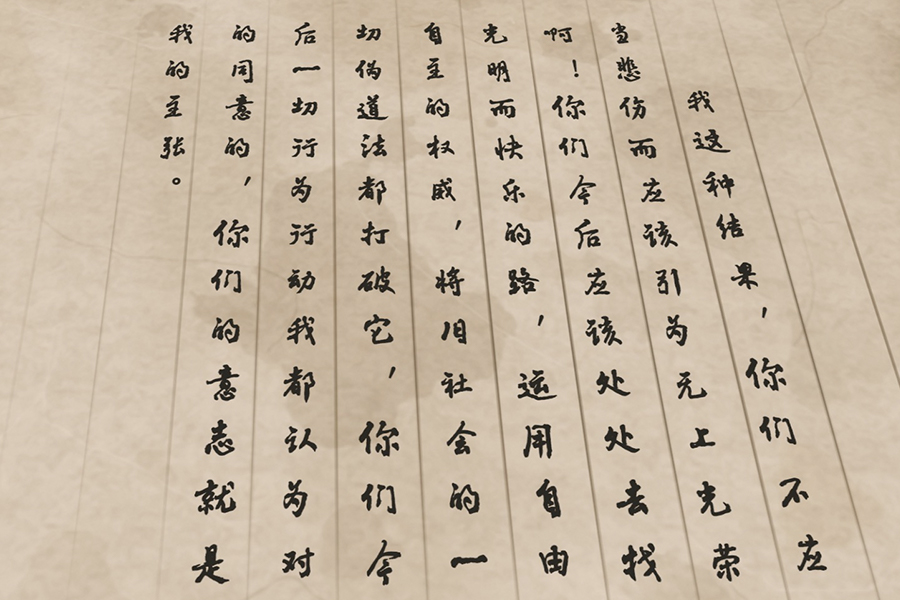 我这种结果，你们不应
当悲伤而应该引为无上光荣
啊！你们今后应该处处去找
光明而快乐的路，运用自由
自主的权威，将旧社会的一
切伪道法都打破它，你们今
后一切行为行动我都认为对
的同意的，你们的意志就是
我的主张。